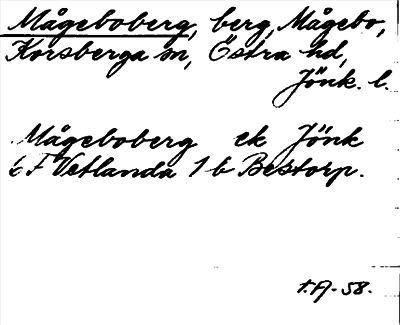 Mågeboberg, berg, Mågebo,
Korsberga sn, Östra hd,
Jönk. l.
Mågeboberg ek Jönk
6 F Vetlanda 7 b Bestorp.
f.A-58.